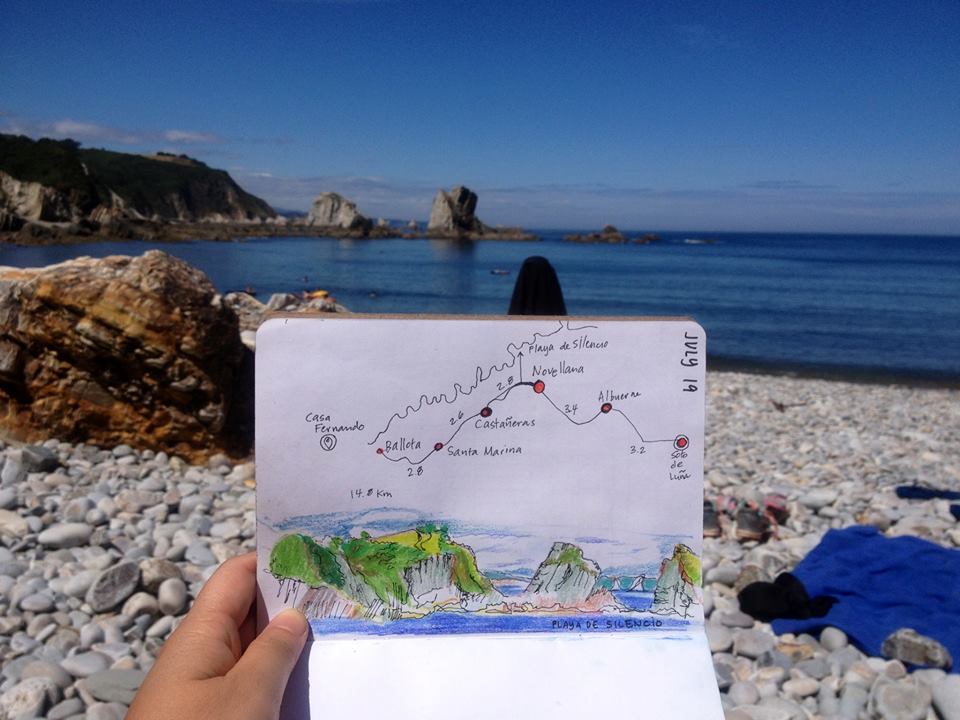 JULY 19
Playa de Silencio
Novellana
2.8
Albuerne
Casa
Fernando
2.6
3.4
Castañeras
Ballota
Santa Marina
3.2
Soto
de
Luiña
2.8
14.8 Km
PLAYA DE SILENCIO